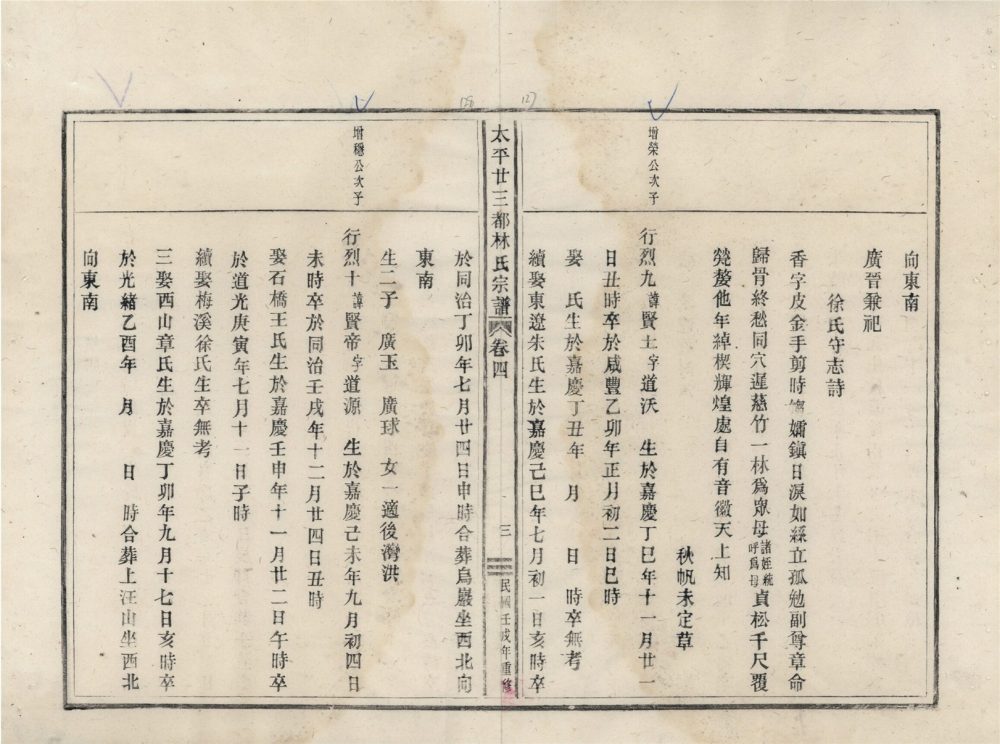 向東南
廣晉兼祀
徐氏守志詩
香字皮金手剪時孀孀鎭日淚如絲立孤勉副尊章命
歸骨終愁同穴遲慈竹一林爲眾母諸姪統呼爲母貞松千尺覆
嫠他年綽楔輝煌處自有音徽天上知
秋帆未定草
增榮公次子
行烈九諱賢土字道沃 生於嘉慶丁巳年十一月廿一
日丑時卒於咸豐乙卯年正月初二日巳時
娶 氏生於嘉慶丁丑年 月 日 時卒無考
續娶東遼朱氏生於嘉慶己巳年七月初一日亥時卒
太平廿三都林氏宗譜 卷四 三 民國壬戌年重修
於同治丁卯年七月廿四日申時合葬烏巖坐西北向
東南
生二子 廣玉 廣球 女一適後灣洪
增穩公次子
行烈十諱賢帝字道源 生於嘉慶己未年九月初四日
未時卒於同治壬戌年十二月廿四日丑時
娶石橋王氏生於嘉慶壬申年十一月廿二日午時卒
於道光庚寅年七月十一日子時
續娶梅溪徐氏生卒無考
三娶西山章氏生於嘉慶丁卯年九月十七日亥時卒
於光緒乙酉年 月 日 時合葬上汪山坐西北
向東南
127
128